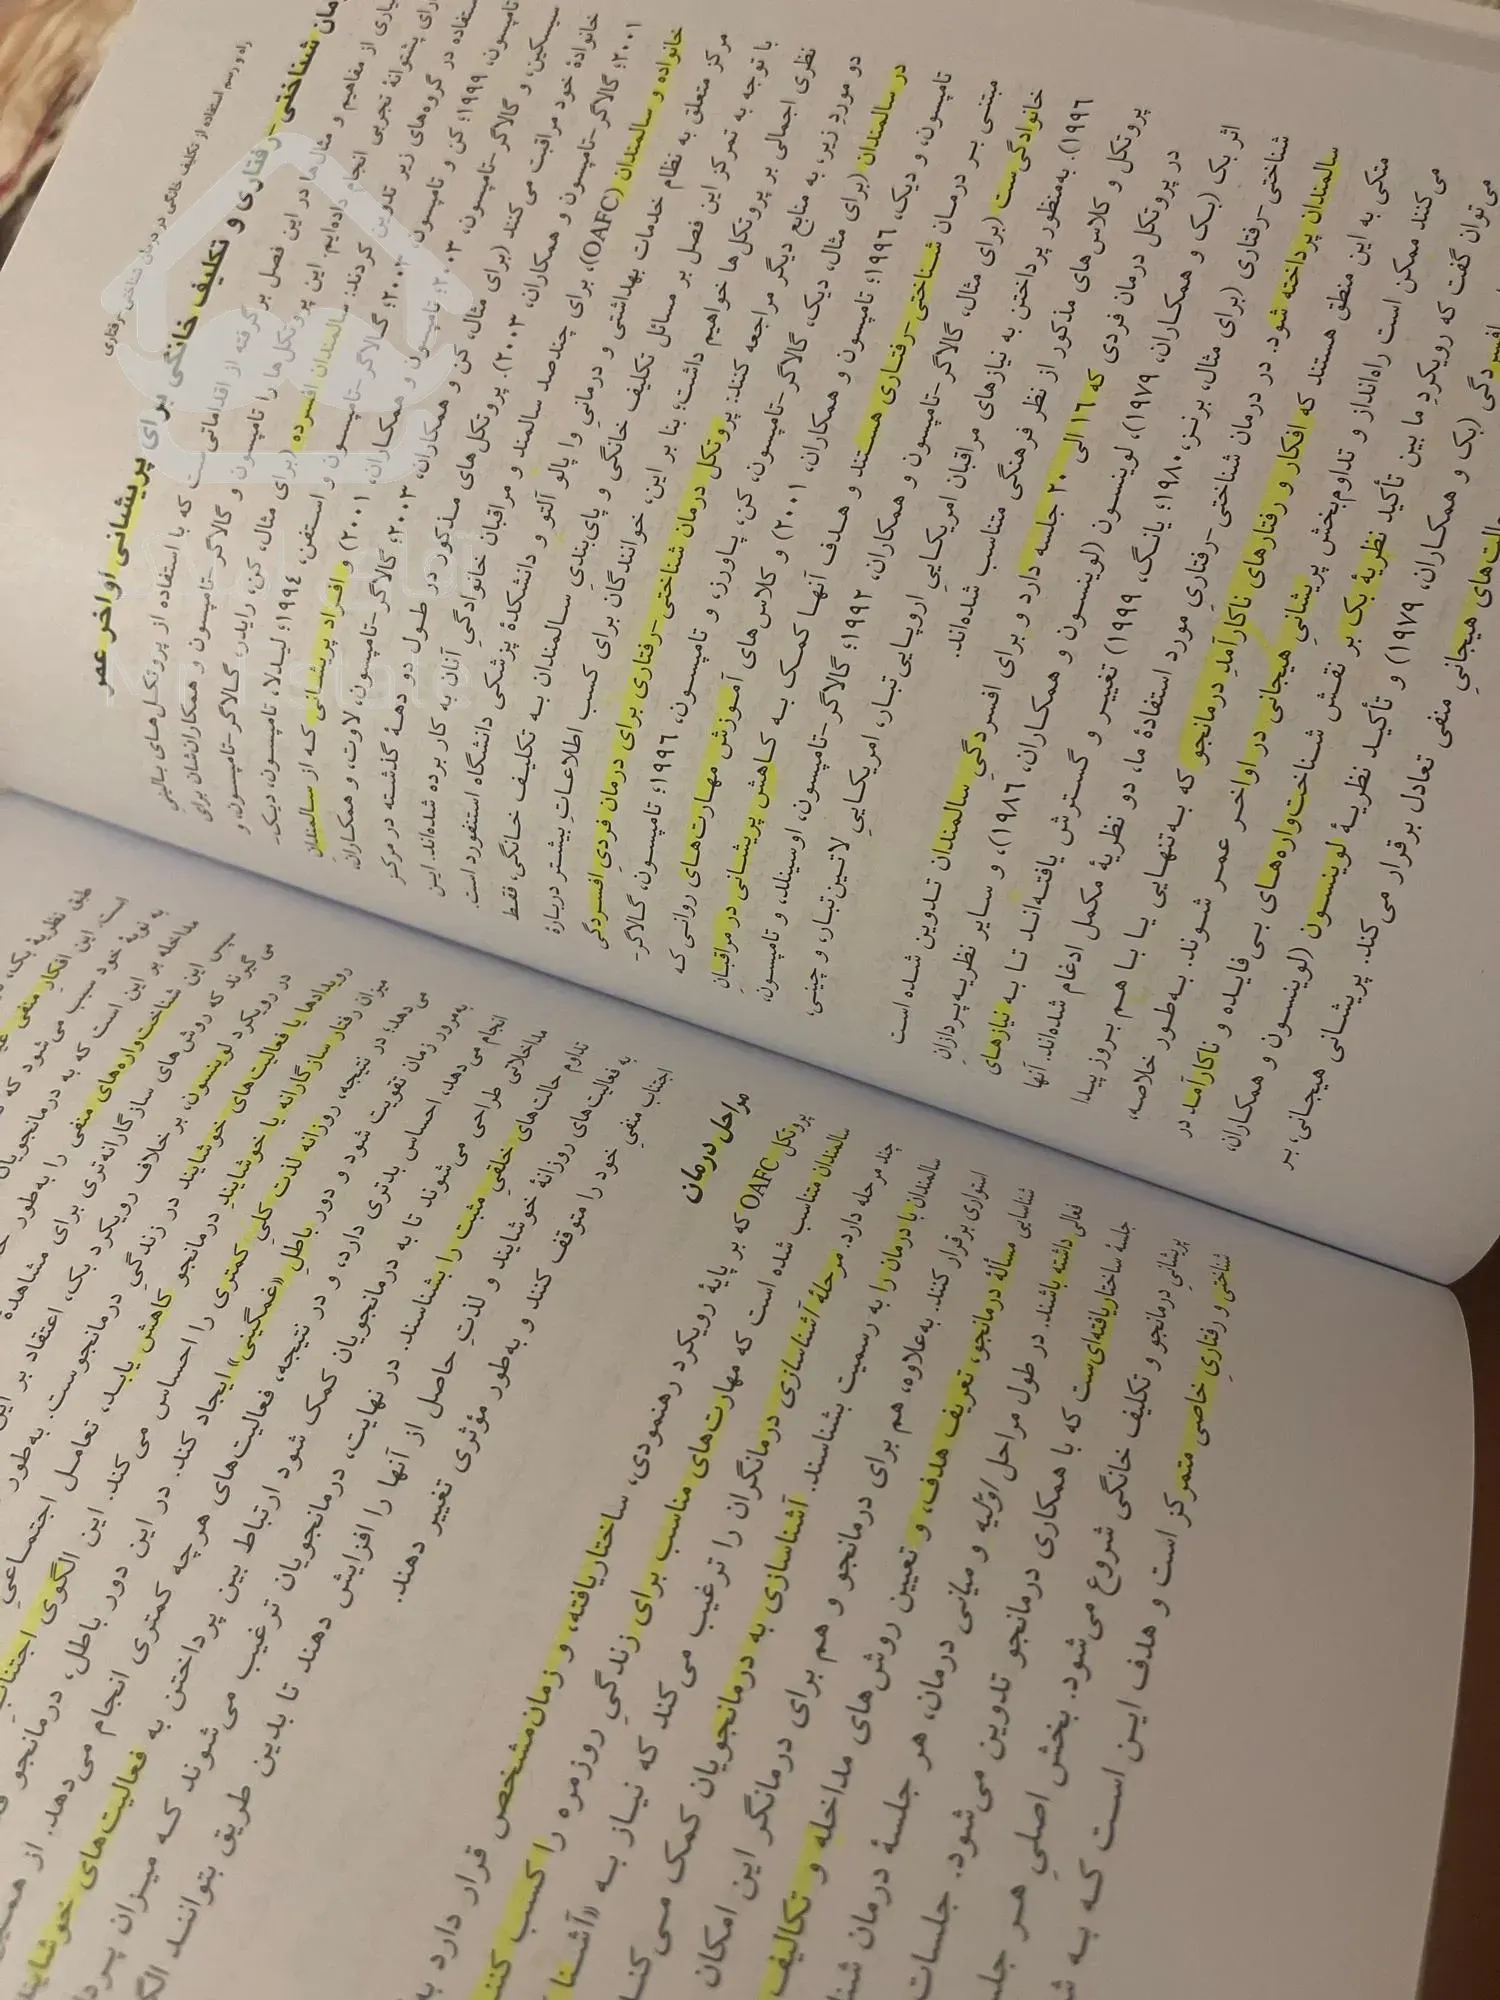 راه و رسم استفاده از تکلیف خانگی در درمان شناختی-رفتاری
درمان شناختی-رفتاری و تکلیف خانگی برای پریشانی اواخر عمر
بسیاری از مفاهیم و مثال‌ها در این فصل برگرفته از اقداماتی‌ست که با استفاده از پروتکل‌های بالینی
دارای پشتوانهٔ تجربی انجام داده‌ایم. این پروتکل‌ها را تامپسون و گالاگر-تامپسون و همکاران‌شان برای
استفاده در گروه‌های زیر تدوین کردند: سالمندان افسرده (برای مثال، کن، رایدر، گالاگر-تامپسون، و
تامپسون، ۱۹۹۹؛ کن و تامپسون، ۲۰۰۳؛ گالاگر-تامپسون و استفن، ۱۹۹۴؛ لیدلا، تامپسون، دیک-
سیسکین، و گالاگر-تامپسون، ۲۰۰۳؛ تامپسون و همکاران، ۲۰۰۱) و افراد پریشانی که از سالمندان
خانوادهٔ خود مراقبت می‌کنند (برای مثال، کن و همکاران، ۲۰۰۳؛ گالاگر-تامپسون، لاوت، و همکاران،
۲۰۰۱؛ گالاگر-تامپسون و همکاران، ۲۰۰۳). پروتکل‌های مذکور در طول دو دههٔ گذشته در مرکز
خانواده و سالمندان (OAFC)، برای چندصد سالمند و مراقبان خانوادگیِ آنان به کار برده شده‌اند. این
مرکز متعلق به نظام خدمات بهداشتی و درمانیِ وا پالو آلتو و دانشکدهٔ پزشکی دانشگاه استنفورد است.
با توجه به تمرکز این فصل بر مسائل تکلیف خانگی و پای‌بندیِ سالمندان به تکلیف خانگی، فقط
نظری اجمالی بر پروتکل‌ها خواهیم داشت؛ بنا بر این، خوانندگان برای کسب اطلاعاتِ بیشتر دربارهٔ
دو مورد زیر، به منابع دیگر مراجعه کنند: پروتکل درمان شناختی-رفتاری برای درمان فردیِ افسردگی
در سالمندان (برای مثال، دیک، گالاگر-تامپسون، کن، پاورز، و تامپسون، ۱۹۹۶؛ تامپسون، گالاگر-
تامپسون، و دیک، ۱۹۹۶؛ تامپسون و همکاران، ۲۰۰۱) و کلاس‌های آموزش مهارت‌های روانی که
مبتنی بر درمان شناختی-رفتاری هستند و هدف آنها کمک به کاهش پریشانی در مراقبان
خانوادگی‌ست (برای مثال، گالاگر-تامپسون و همکاران، ۱۹۹۲؛ گالاگر-تامپسون، اوسینلد، و تامپسون،
۱۹۹۶). به‌منظور پرداختن به نیازهای مراقبان امریکاییِ اروپایی تبار، امریکاییِ لاتین تبار، و چینی،
پروتکل و کلاس‌های مذکور از نظر فرهنگی متناسب شده‌اند.
در پروتکل درمان فردی که ۱۶ الی ۲۰ جلسه دارد و برای افسردگیِ سالمندان تدوین شده است
اثر بک (بک و همکاران، ۱۹۷۹)، لوینسون (لوینسون و همکاران، ۱۹۸۶)، و سایر نظریه‌پردازانِ
شناختی-رفتاری (برای مثال، برنز، ۱۹۸۰؛ یانگ، ۱۹۹۹) تغییر و گسترش یافته‌اند تا به نیازهای
سالمندان پرداخته شود. در درمان شناختی-رفتاریِ مورد استفادهٔ ما، دو نظریهٔ مکمل ادغام شده‌اند. آنها
متکی به این منطق هستند که افکار و رفتارهای ناکارآمدِ درمانجو که به‌تنهایی یا با هم بروز پیدا
می‌کنند ممکن است راه‌انداز و تداوم‌بخش پریشانیِ هیجانی در اواخر عمر شوند. به‌طور خلاصه،
می‌توان گفت که رویکردِ ما بین تأکید نظریهٔ بک بر نقش شناخت‌واره‌های بی‌فایده و ناکارآمد در
افسردگی (بک و همکاران، ۱۹۷۹) و تأکید نظریهٔ لوینسون (لوینسون و همکاران،
حالت‌های هیجانیِ منفی تعادل برقرار می‌کند. پریشانی هیجانی، بر
طبق نظریهٔ بک،
است. این افکارِ منفی
به نوبهٔ خود سبب می‌شود که
مداخله بر این است که به درمانجویان
سپس این شناخت‌واره‌های منفی را به‌طور
می‌گیرند که روش‌های سازگارانه‌تری برای مشاهدهٔ
در رویکرد لوینسون، بر خلاف رویکرد بک، اعتقاد بر این
رویدادها یا فعالیت‌های خوشایند در زندگیِ درمانجوست. به‌طور
میزان رفتار سازگارانه یا خوشایندِ درمانجو کاهش یابد، تعامل اجتماعیِ
می‌دهد؛ در نتیجه، روزانه لذت کلیِ کمتری را احساس می‌کند. این الگوی اجتنابیِ
به‌مرور زمان تقویت شود و دور باطلِ «غمگینی» ایجاد کند. در این دور باطل، درمانجو
انجام می‌دهد، احساس بدتری دارد، و در نتیجه، فعالیت‌های هرچه کمتری انجام می‌دهد. از همین
مداخلاتی طراحی می‌شوند تا به درمانجویان کمک شود ارتباط بین پرداختن به فعالیت‌های خوشایند
تداوم حالت‌های خلقیِ مثبت را بشناسند. در نهایت، درمانجویان ترغیب می‌شوند که میزان
به فعالیت‌های روزانهٔ خوشایند و لذتِ حاصل از آنها را افزایش دهند تا بدین طریق بتوانند
اجتناب منفیِ خود را متوقف کنند و به‌طور مؤثری تغییر دهند.
مراحل درمان
پروتکل OAFC که بر پایهٔ رویکرد رهنمودی، ساختاریافته، و زمان‌مشخص قرار دارد
سالمندان متناسب شده است که مهارت‌های مناسب برای زندگیِ روزمره را کسب کنند
چند مرحله دارد. مرحلهٔ آشناسازی درمانگران را ترغیب می‌کند که نیاز به «آشنا
سالمندان با درمان را به رسمیت بشناسند. آشناسازی به درمانجویان کمک می‌کند
استواری برقرار کنند. به‌علاوه، هم برای درمانجو و هم برای درمانگر این امکان
شناسایی مسألهٔ درمانجو، تعریف هدف، و تعیین روش‌های مداخله و تکالیف
فعالی داشته باشند. در طول مراحل اوّلیه و میانی درمان، هر جلسهٔ درمان
جلسهٔ ساختاریافته‌ای‌ست که با همکاری درمانجو تدوین می‌شود. جلسات
پریشانیِ درمانجو و تکلیف خانگی شروع می‌شود. بخش اصلیِ هر
شناختی و رفتاریِ خاصی متمرکز است و هدف این است که به